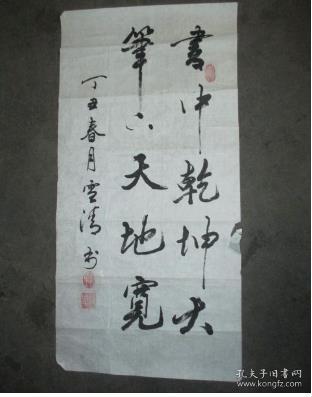 書中乾坤大
筆下天地寬
丁丑春月雪清书
孔夫子旧书网
www.kongfz.com